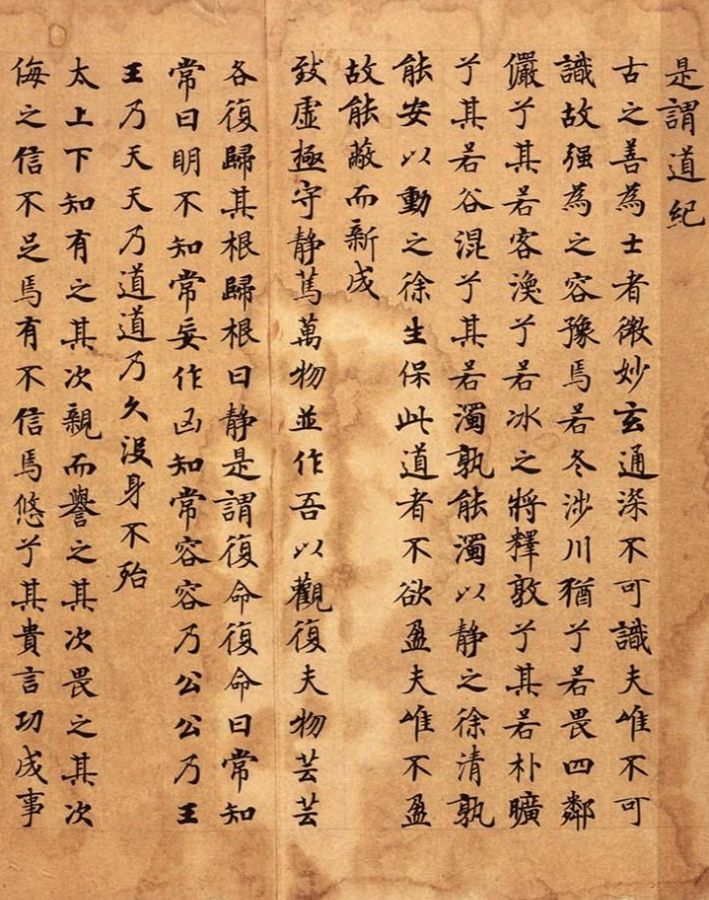 是謂道紀
古之善為士者微妙玄通深不可識夫唯不可
識故强為之容豫焉若冬涉川猶兮若畏四鄰
儼兮其若客渙兮若冰之將釋敦兮其若朴曠
兮其若谷混兮其若濁孰能濁以静之徐清孰
能安以動之徐生保此道者不欲盈夫唯不盈
故能蔽而新成
致虛極守静篤萬物並作吾以觀復夫物芸芸
各復歸其根歸根曰静是謂復命復命曰常知
常曰明不知常妄作凶知常容容乃公公乃王
王乃天天乃道道乃久没身不殆
太上下知有之其次親而譽之其次畏之其次
侮之信不足焉有不信焉悠兮其貴言功成事